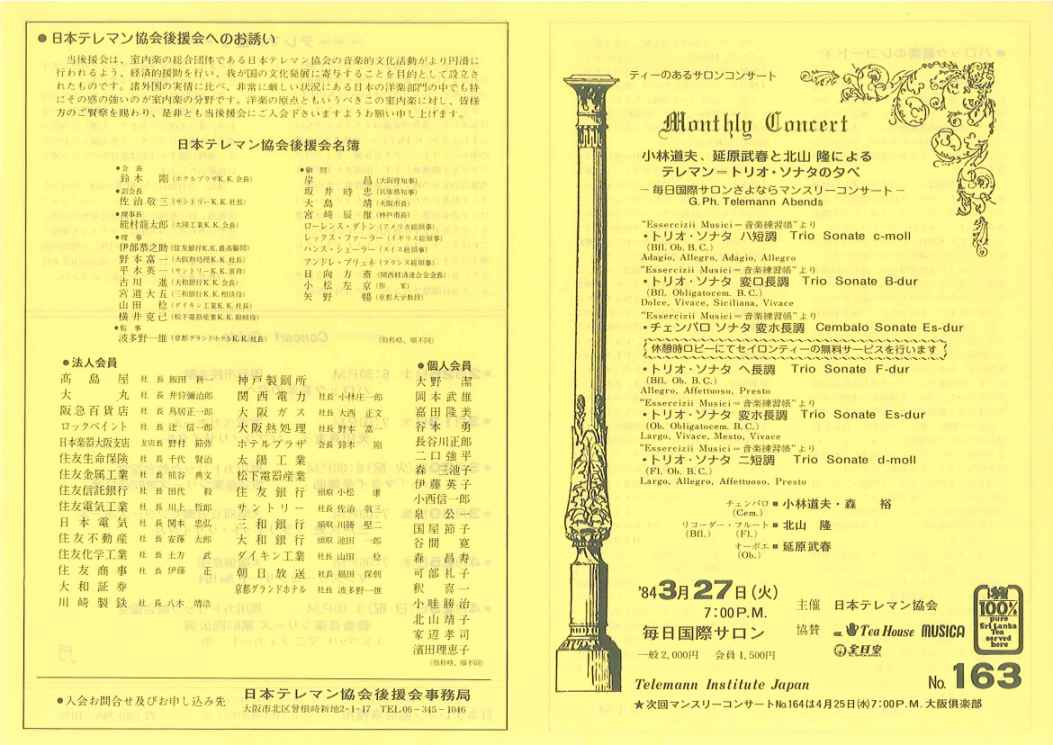 ●日本テレマン協会後援会へのお誘い
当後援会は、室内楽の総合団体である日本テレマン協会の音楽的文化活動がより円滑に
行われるよう、経済的援助を行い、我が国の文化発展に寄与することを目的として設立さ
れたものです。諸外国の実情に比べ、非常に厳しい状況にある日本の洋楽部門の中でも特
にその感の強いのが室内楽の分野です。洋楽の原点ともいうべきこの室内楽に対し、皆様
方のご賢察を賜わり、是非とも当後援会にご入会下さいますようお願い申し上げます。
日本テレマン協会後援会名簿
●会長
鈴木 剛 (ホテルプラザK.K.会長)
●副会長
佐治敬三 (サントリーK.K.社長)
●理事長
能村龍太郎 (太陽工業K.K.会長)
●理事
伊部恭之助 (住友銀行K.K.最高顧問)
野本富一 (大阪熱処理K.K.社長)
平木英一 (サントリーK.K.)
古川 進 (大和銀行K.K.会長)
宮道大五 (三和銀行K.K.相談役)
山田 稔 (ダイキン工業K.K.社長)
横井克己 (松下電器産業K.K.)
●監事
波多野一雄 (京都グランドホテルK.K.社長)
●顧問
岸 昌 (大阪府知事)
坂井時忠 (兵庫県知事)
大島 靖 (大阪市長)
宮崎辰雄 (神戸市長)
ローレンス・ダトン (アメリカ総領事)
レックス・ファーラー (イギリス総領事)
ハンス・シェーラー (スイス総領事)
アンドレ・ブリュネ (フランス総領事)
日向方齊 (関西経済連合会会長)
小松左京 (作家)
矢野 暢 (京都大学教授)
(敬称略、順不同)
●法人会員
髙島屋 社長 飯田 新一
大丸 社長 井狩彌治郎
阪急百貨店 社長 鳥居正一郎
ロックペイント 社長 辻 信一郎
日本楽器大阪支店 支店長 野村
住友生命保険 社長 千代 賢治
住友金属工業 社長 熊谷 典文
住友信託銀行 社長 田代 毅
住友電気工業 社長 川上 哲郎
日本電気 社長 関本 忠弘
住友不動産 社長 安藤 太郎
住友化学工業 社長 土方 武
住友商事 社長 伊藤 正
大和証券
川崎製鉄 社長 八木 靖浩
神戸製鋼所
関西電力 社長 小林庄一郎
大阪ガス 社長 大西 正文
大阪熱処理 社長 野本 富一
ホテルプラザ 会長 鈴木 剛
太陽工業
松下電器産業
住友銀行 頭取 小松 康
サントリー 社長 佐治 敬三
三和銀行 頭取 川勝 堅二
大和銀行 頭取 池田 一郎
ダイキン工業 社長 山田 稔
朝日放送 社長 原 清
京都グランドホテル 社長 波多野一雄
●個人会員
大野 潔
岡本武雄
嘉田隆美
谷本 勇
長谷川正郎
二口強平
森 三池子
伊藤英子
小西信一郎
泉 公一
国屋節子
谷間 寛
森 昌寿
可部礼子
釈 喜一
小畦勝治
北山靖子
家辺孝司
濱田理恵子
(敬称略、順不同)
●入会お問合せ及びお申し込み先
日本テレマン協会後援会事務局
大阪市北区曽根崎新地2-1-17 TEL06-345-1046
ティーのあるサロンコンサート
Monthly Concert
小林道夫、延原武春と北山 隆による
テレマン=トリオ・ソナタの夕べ
－毎日国際サロンさよならマンスリーコンサート－
G. Ph. Telemann Abends
"Essercizii Musici=音楽練習帳"より
・トリオ・ソナタ ハ短調 Trio Sonate c-moll
(Bfl. Ob. B. C.)
Adagio, Allegro, Adagio, Allegro
"Essercizii Musici=音楽練習帳"より
・トリオ・ソナタ 変ロ長調 Trio Sonate B-dur
(Bfl. Obligatocem. B. C.)
Dolce, Vivace, Siciliana, Vivace
"Essercizii Musici=音楽練習帳"より
・チェンバロ ソナタ 変ホ長調 Cembalo Sonate Es-dur
休憩時ロビーにてセイロンティーの無料サービスを行います
・トリオ・ソナタ ヘ長調 Trio Sonate F-dur
(Bfl. Ob. B. C.)
Allegro, Affettuoso, Presto
"Essercizii Musici=音楽練習帳"より
・トリオ・ソナタ 変ホ長調 Trio Sonate Es-dur
(Ob. Obligatocem. B. C.)
Largo, Vivace, Mesto, Vivace
"Essercizii Musici=音楽練習帳"より
・トリオ・ソナタ 二短調 Trio Sonate d-moll
(Fl. Ob. B. C.)
Largo, Allegro, Affettuoso, Presto
チェンバロ■小林道夫・森 裕
(Cem.)
リコーダー・フルート■北山 隆
(Bfl.) (Fl.)
オーボエ■延原武春
(Ob.)
'84 3月27日(火)
7:00P.M.
毎日国際サロン
一般2,000円 会員1,500円
主催 日本テレマン協会
協賛 Tea House MUSICA
100%
pure
Sri Lanka
Tea
served
here
Telemann Institute Japan
No. 163
★次回マンスリーコンサートNo.164は4月25日(水)7:00P.M. 大阪倶楽部